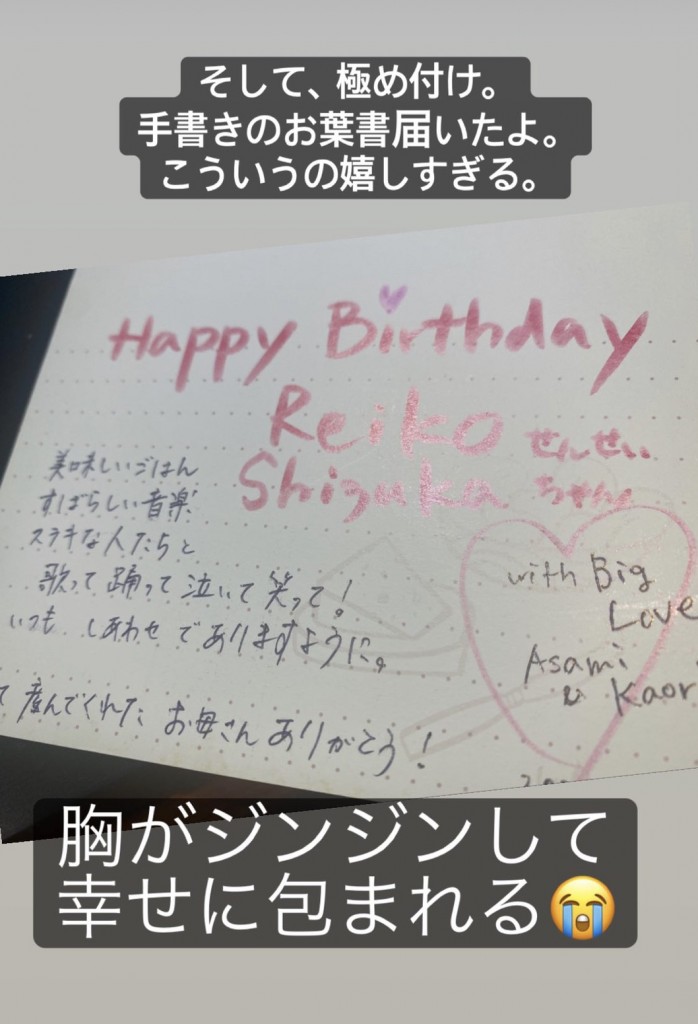 そして、極め付け。
手書きのお葉書届いたよ。
こういうの嬉しすぎる。
Happy Birthday
Reiko せんせい
Shizuka ちゃん
美味しいごはん
すばらしい音楽
ステキな人たちと
歌って踊って泣いて笑って!
いつも しあわせでありますように。
て産んでくれた お母さんありがとう!
with Big
Love
Asami
& Kaor
胸がジンジンして
幸せに包まれる😭